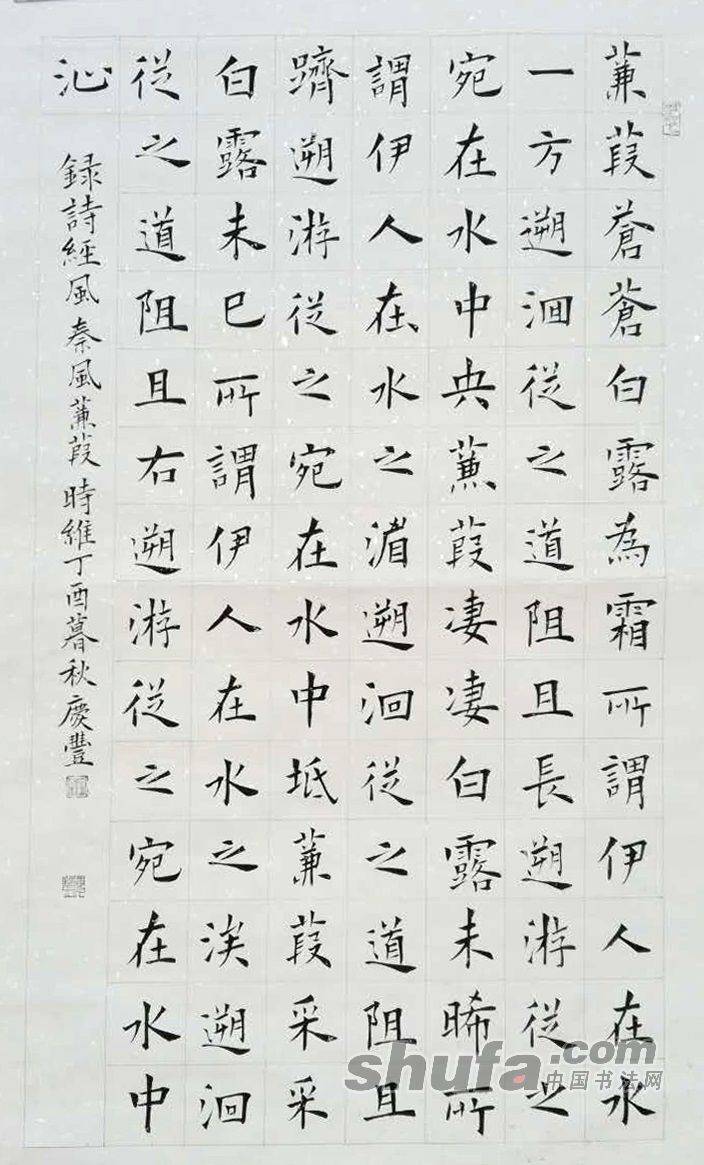 蒹葭蒼蒼白露為霜所謂伊人在水
一方遡洄從之道阻且長遡游從之
宛在水中央蒹葭凄凄白露未晞所
謂伊人在水之湄遡洄從之道阻且
躋遡游從之宛在水中坻蒹葭采采
白露未已所謂伊人在水之涘遡洄
從之道阻且右遡游從之宛在水中
沚
録詩經風秦風蒹葭時維丁酉暮秋慶豐
shufa.com
中国书法网